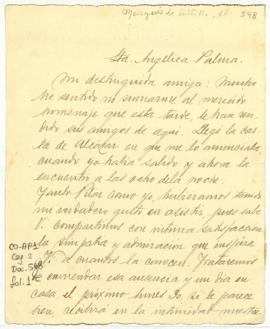 Marqués de Saltillo, El 548
Sta. Angélica Palma.
Mi distinguida amiga: Mucho
he sentido no sumarme al merecido
homenaje que esta tarde, le han ren-
dido sus amigos de aquí. Llegó la car-
ta de Alcázar en que me lo anunciaba,
cuando yo había salido y ahora la
encuentro a las ocho de la noche.
Tanto Pilar como yo, hubiéramos tenido
un verdadero gusto en asistir, pues sabe
V. compartimos con íntima satisfacción
la simpatía y admiración que inspira
V. a cuantos la conocen. Trataremos
de enmendar esa ausencia y un día en
casa, el próximo lunes 30, si le parece
bien, recibirá en la intimidad nuestro
CO-AP1
Caj. 2
Doc. 548
fol. 1